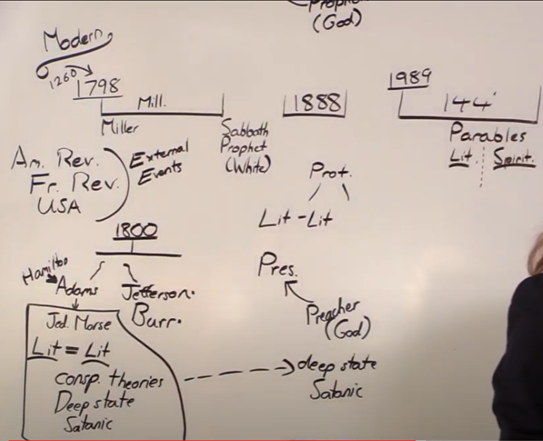 Prophet
(God)
Modern
1260
1798
Mill.
Miller
Sabbath
Prophet
(White)
1888
1989
144
Parables
Lit. Spirit.
Am. Rev.
Fr. Rev.
USA
External
Events
Prot.
Lit - Lit
1800
Hamilton
Adams
Jefferson.
Burr.
Pres.
Preacher
(God)
Jed. Morse
Lit = Lit
consp. theories
Deep state
Satanic
deep state
Satanic